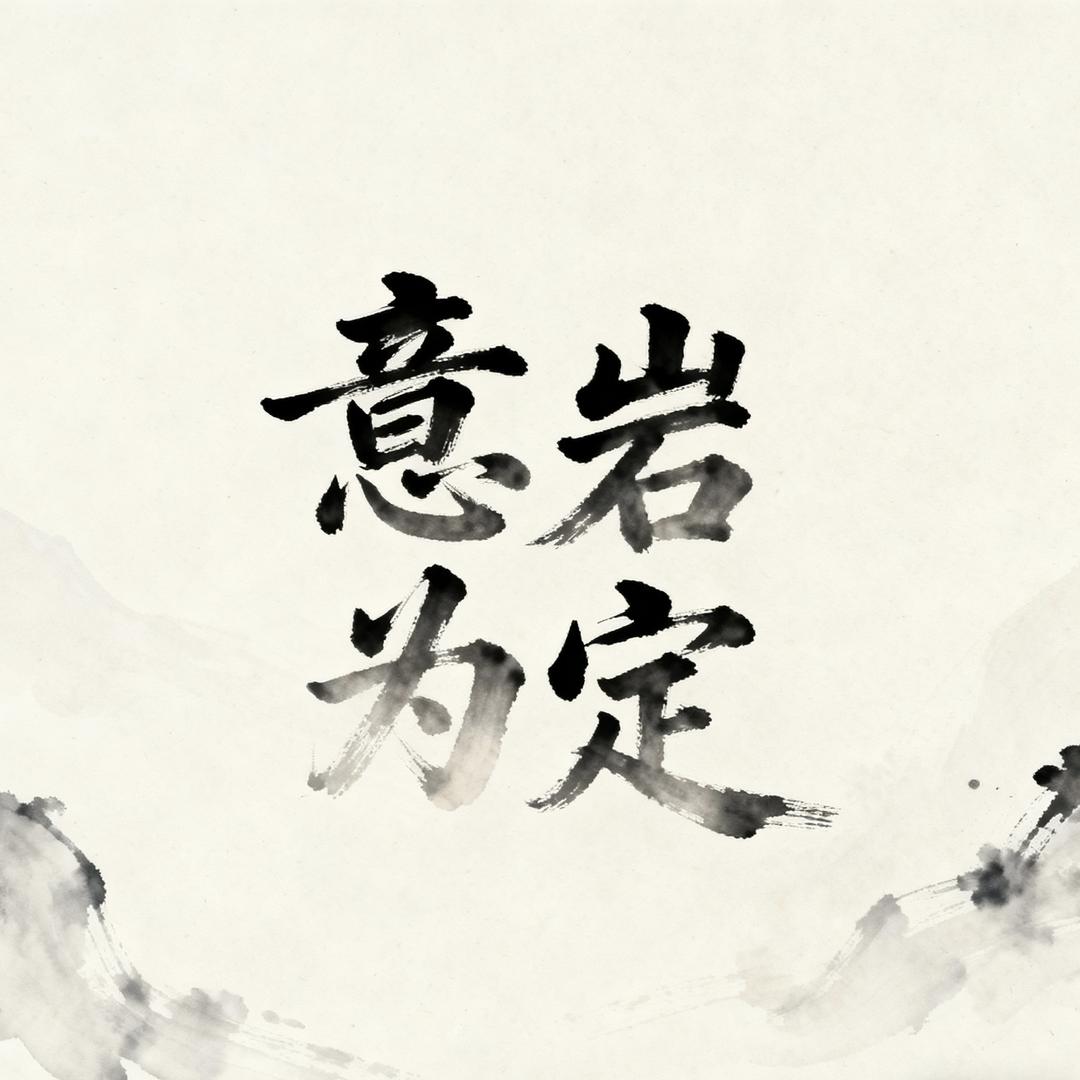 意岩
为定